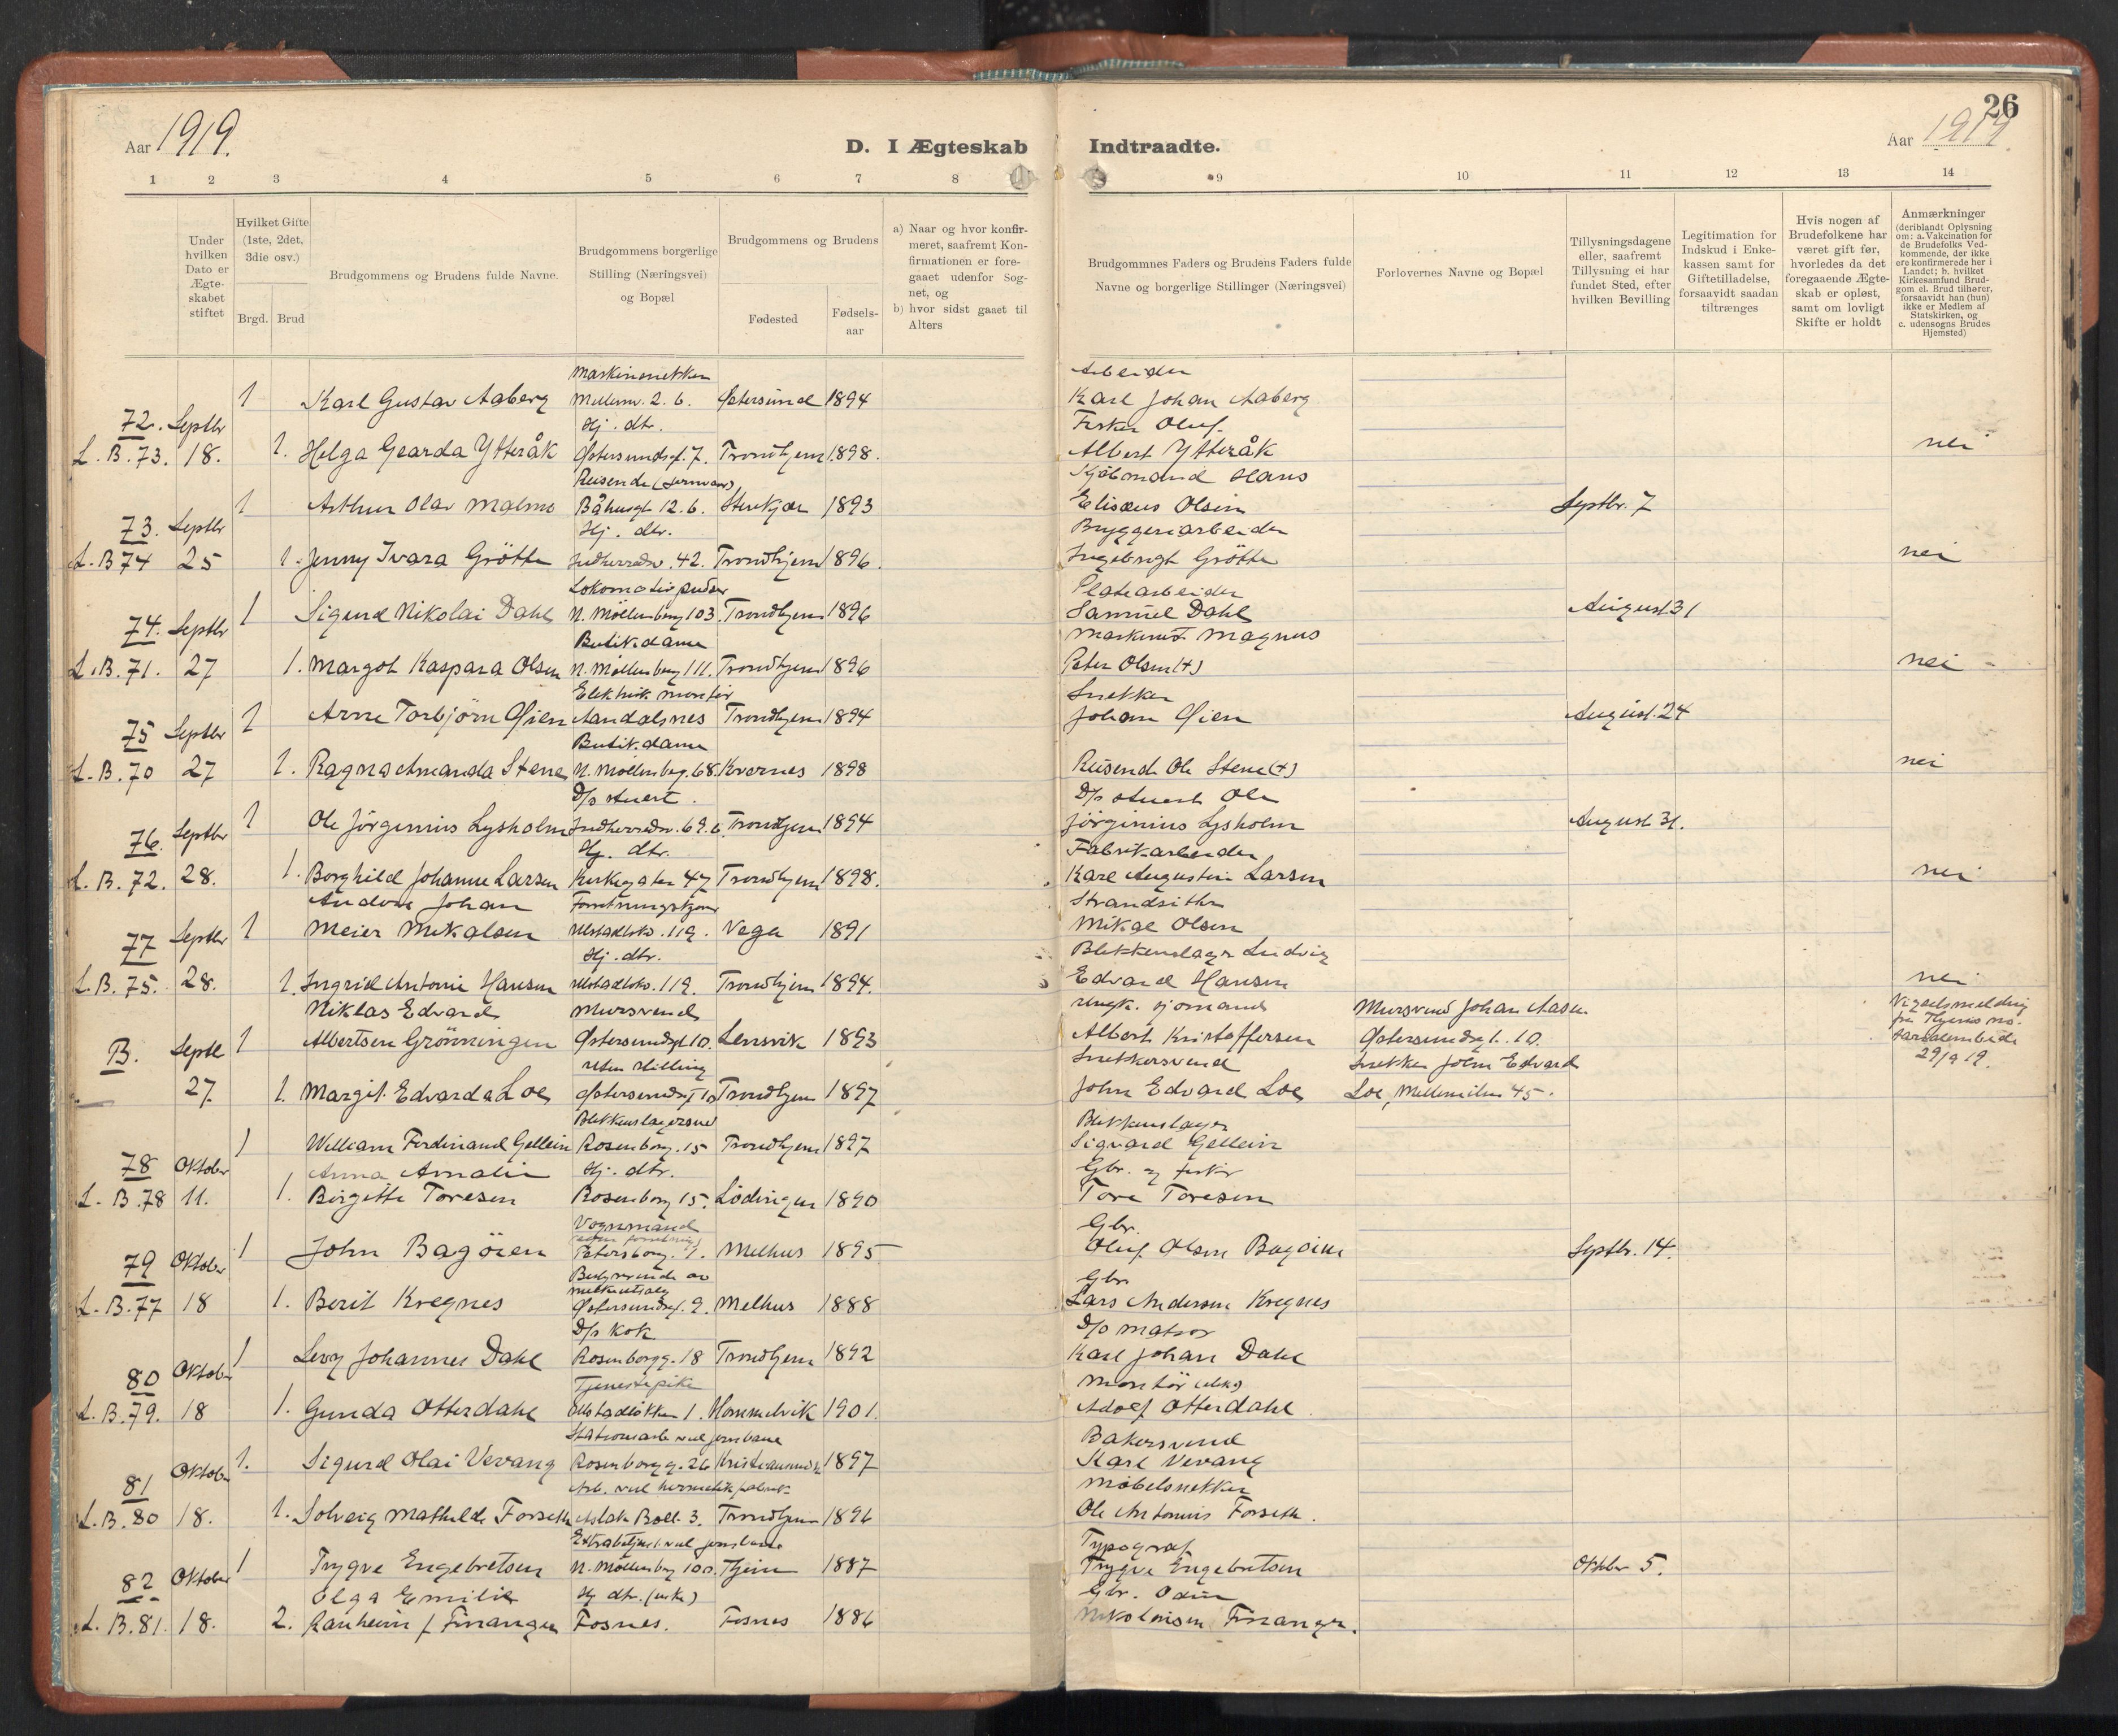 26
Aar 1919.
D. I Ægteskab Indtraadte.
Aar 1919.
1 2 3 4 5 6 7 8 9 10 11 12 13 14
Under hvilken Dato er Ægte-skabet stiftet
Hvilket Gifte (1ste, 2det, 3die osv.)
Brgd. Brud
Brudgommens og Brudens fulde Navne.
Brudgommens borgerlige Stilling (Næringsvei) og Bopæl
Brudgommens og Brudens
Fødested
Fødsels-aar
a) Naar og hvor konfir-meret, saafremt Kon-firmationen er fore-gaaet udenfor Sog-net, og
b) hvor sidst gaaet til Alters
Brudgommnes Faders og Brudens Faders fulde Navne og borgerlige Stillinger (Næringsvei)
Forlovernes Navne og Bopæl
Tillysningsdagene eller, saafremt Tillysning ei har fundet Sted, efter hvilken Bevilling
Legitimation for Indskud i Enke-kassen samt for Giftetilladelse, forsaavidt saadan tiltrænges
Hvis nogen af Brudefolkene har været gift før, hvorledes da det foregaaende Ægte-skab er opløst, samt om lovligt Skifte er holdt
Anmærkninger (deriblandt Oplysning om: a. Vakcination for de Brudefolks Ved-kommende, der ikke ere konfirmerede her i Landet; b. hvilket Kirkesamfund Brud-gom el. Brud tilhører, forsaavidt han (hun) ikke er Medlem af Statskirken, og c. udensogns Brudes Hjemsted)
Maskinsnekker Arbeider
72. Septbr 1 Karl Gustav Aaberg Mellemv. 2. b. Østersund 1894 Karl Johan Aaberg
Hj. dtr. Fisker Oluf
L. B. 73. 18. 1. Helga Gearda Ytteråk Østersundsg. 7. Trondhjem 1898. Albert Ytteråk nei
Reisende Kjøbmand Hans
73. Septbr 1 Arthur Olav Malmo Båhusgt 12. b. Stenkjær 1893 Elisæus Olsen Septbr. 7
Hj. dtr. Bryggeriarbeider
L. B 74 25 1. Jenny Ivara Grötte Indherredsv. 42. Trondhjem 1896. Ingebrigt Grötte nei
Lokomotivpudser Platearbeider
74. Septbr 1 Sigurd Nikolai Dahl N. Möllenberg 103. Trondhjem 1896 Samuel Dahl August 31
Butikdame Maskinist Magnus
L. B. 71. 27 1. Margot Kaspara Olsen N. Möllenberg 111. Trondhjem 1896 Peter Olsen (+) nei
Elektrik montør Snekker
75 Septbr 1 Arne Torbjörn Øien Aandalsnes Trondhjem 1894 Johan Øien August 24
Butik.dame
L. B. 70 27 1. Ragna Amanda Stene N. Möllenbg. 68. Kvernes 1898 Reisende Ole Stene (+) nei
D/s stuert. D/s stuert Ole
76. Septbr 1 Ole Jörginius Lysholm Indherredsv. 69. b. Trondhjem 1894 Jörginius Lysholm August 31.
Hj. dtr. Fabrikarbeider
L. B. 72. 28. 1. Borghild Johanne Larsen Kirkegaten 47 Trondhjem 1898. Karl Augustin Larsen nei
Andor Johan Strandsitter
77 Septbr 1 Meier Mikalsen Ulstadløkk. 119. Vega 1891 Mikal Olsen
Hj. dtr. Blikkenslager Ludvig
L. B. 75. 28. 1. Ingrid Antonie Hansen Ulstadløkk. 119. Trondhjem 1894. Edvard Hansen nei
Niklas Edvard Mursvend Ungk. sjömand Mursvend Johan Aasen Vigselsmelding
B. Septb 1 Albertsen Grönningen Østersundsgt 10. Lensvik 1893 Albert Kristoffersen Østersundsg t. 10. fra Thjems no-tarialembede 29/9 19.
uten stilling Snekkersvend Snekker John Edvard
27 1. Margit Edvarda Loe Østersundsgt 10 Trondhjem 1897 John Edvard Loe Loe, Mellemilen 45.
Blikkenslagersvend Blikkenslager
78 Oktober 1 William Ferdinand Gellein Rosenborg. 15 Trondhjem 1897 Sigvard Gellein
Anna Amalie Hj. dtr. Gbr. og fisker
L. B. 78 11. 1. Birgitte Toresen Rosenborg 15. Lödingen 1890 Tore Toresen
Vognmand (egen forretning) Gbr.
79 Oktober 1 John Bagöien Petersborg. 1. Melhus 1895 Oluf Olsen Bagöien Septbr. 14.
Bestyrerinde av melkeutsalg Gbr.
L. B. 77 18 1. Berit Kregnes Østersundsg. 9. Melhus 1888 Lars Andersen Kregnes
D/s kok D/s matros
80 Oktober 1 Levy Johannes Dahl Rosenborgg. 18 Trondhjem 1892 Karl Johan Dahl
Tjenestepike Montör (elek.)
L. B. 79. 18 1. Gunda Otterdahl Ulstadløkken 1. Hommelvik 1901. Adolf Otterdahl
Stationsarb ved jernbane Bakersvend
81 Oktober 1. Sigurd Olai Vevang Rosenborgg. 26 Kristiansund N 1897 Karl Vevang
Arb. ved hermetikfabrik Möbelsnekker
L. B. 80 18. 1. Solveig Mathilde Forseth Aslak Bolt. 3. Trondhjem 1896 Ole Antonius Forseth.
Extrabetjent ved jernbane Typograf
82 Oktober 1 Trygve Engebretsen N. Möllenberg 100. Thjem 1887 Trygve Engebretsen Oktober 5.
Olga Emilie Hj dtr. (enke) Gbr. Odin
L. B. 81. 18. 2. Ranheim f. Finanger Fosnes. Fosnes 1886 Nikolaisen Finanger.